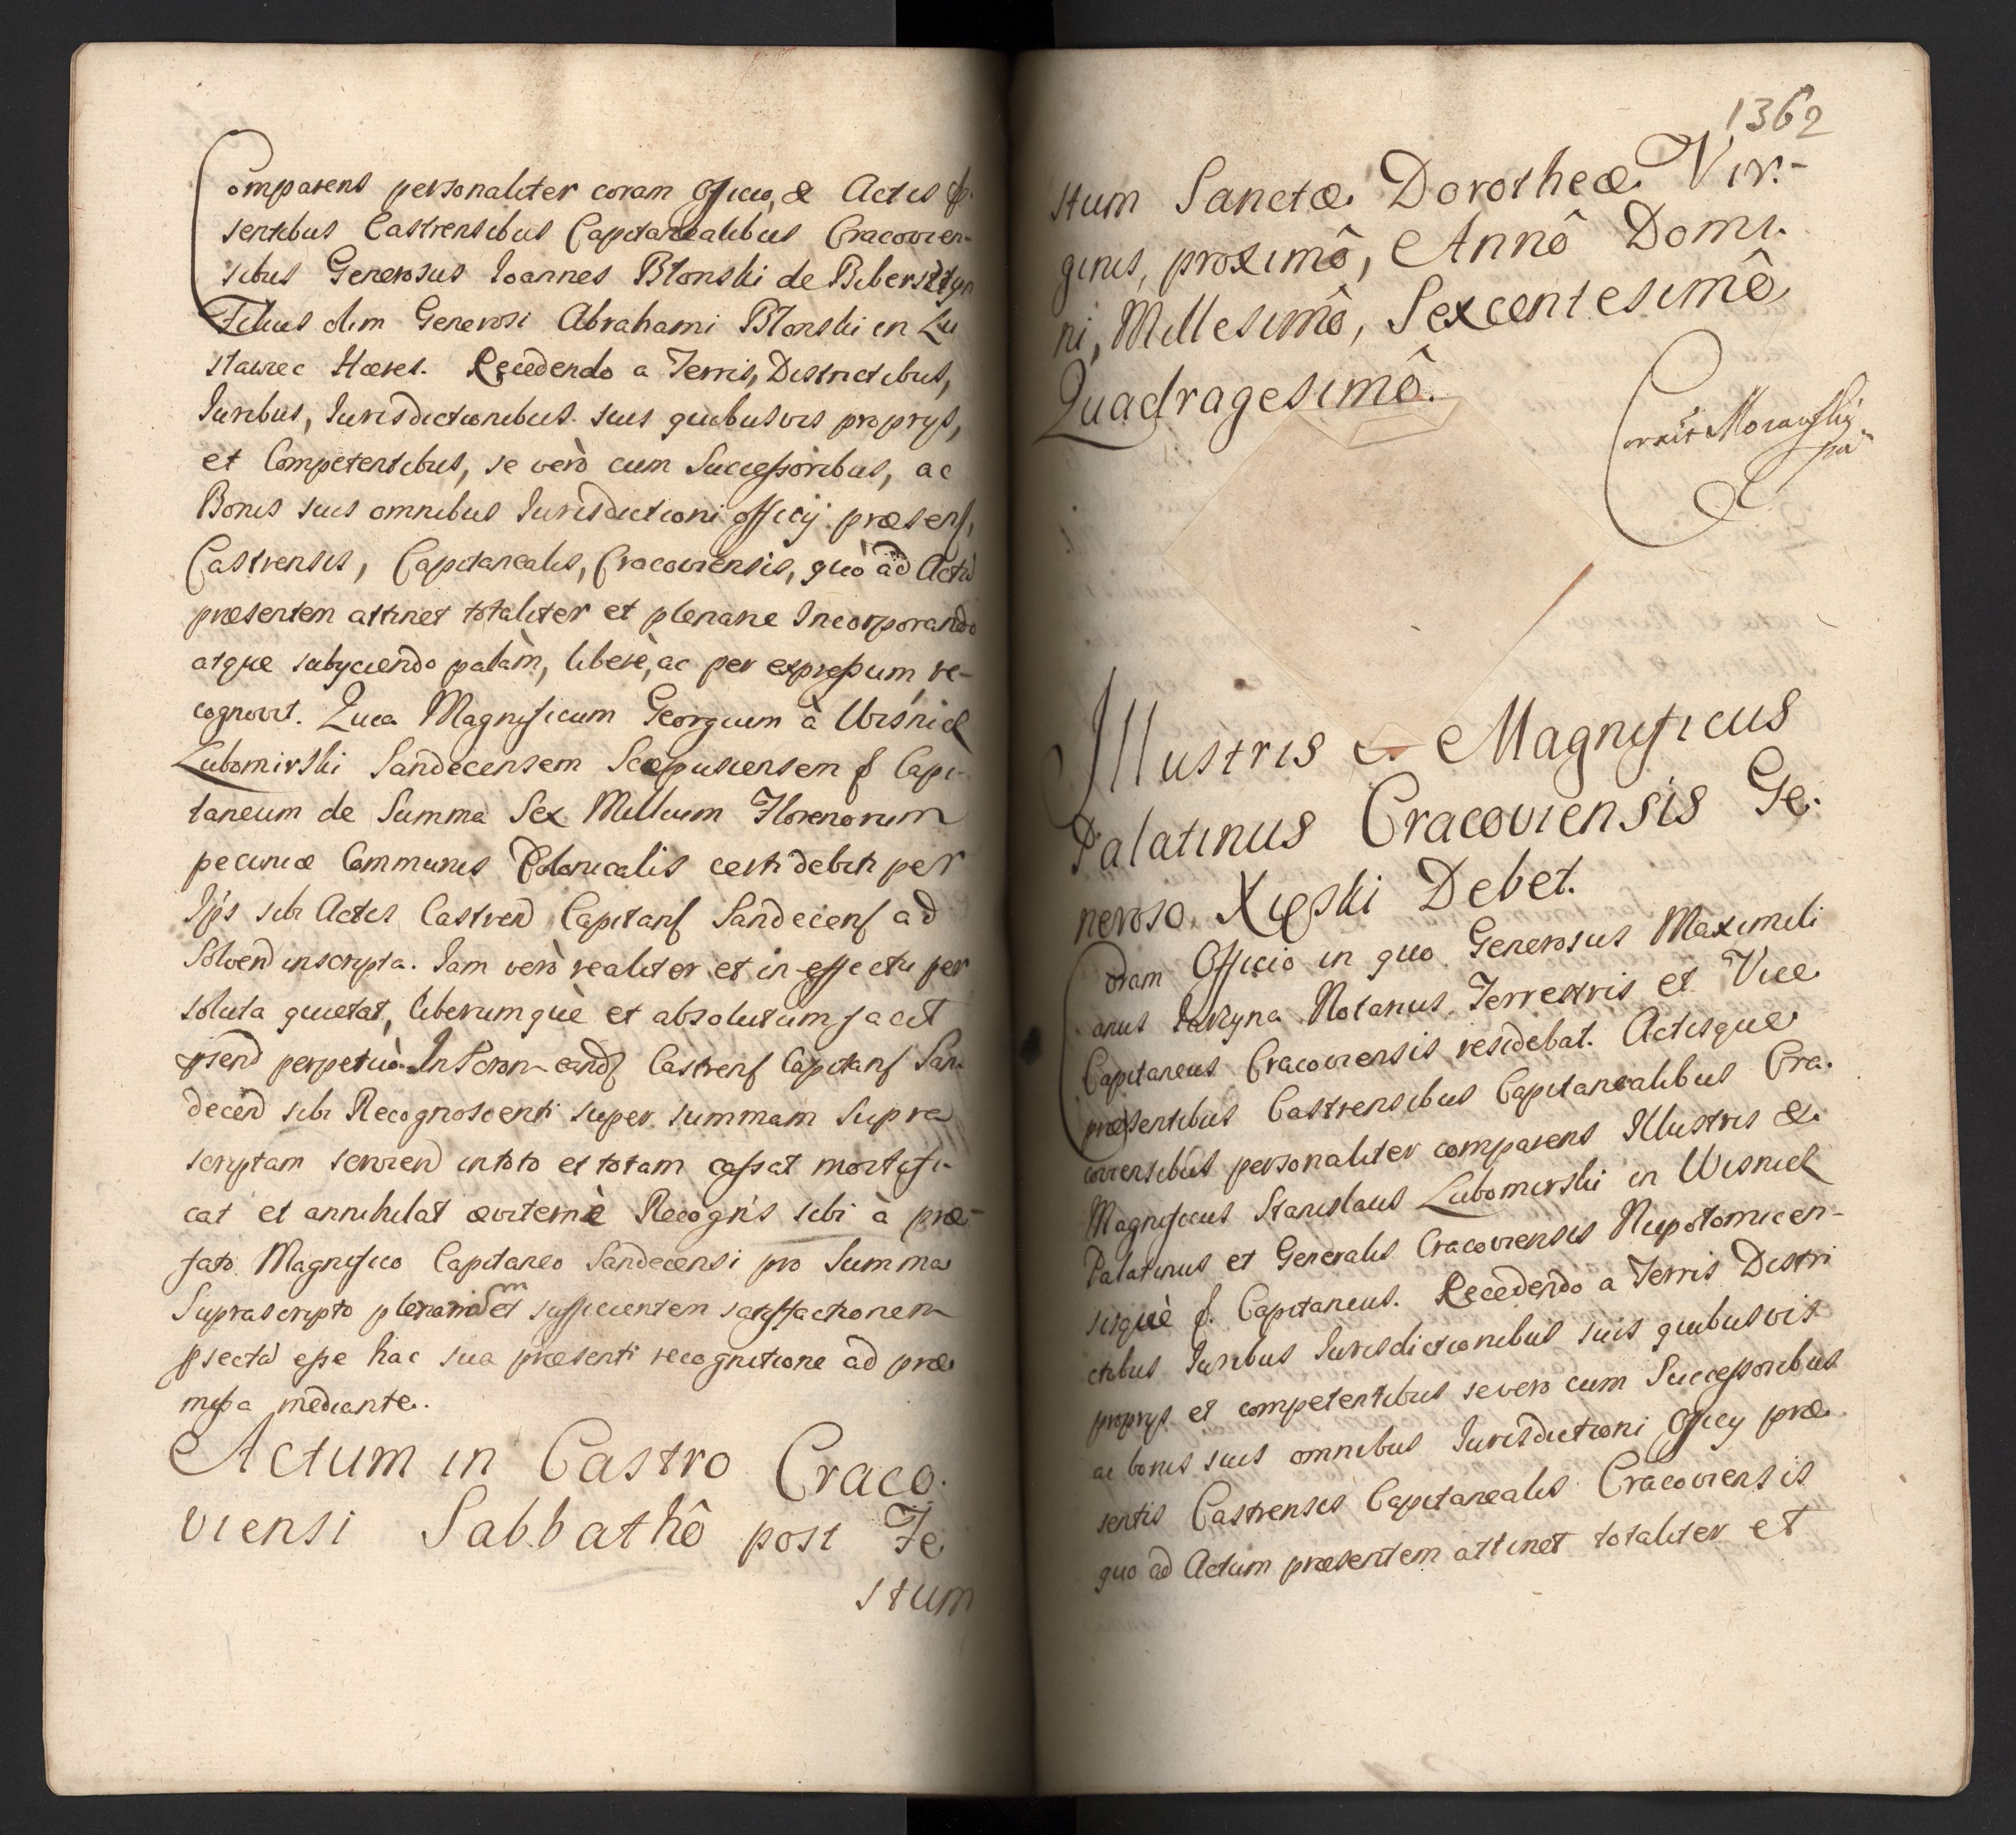 Comparens personaliter coram Officio, & Actis p.
sentibus Castrensibus Capitanealibus Cracovien-
sibus Generosus Ioannes Błonski de Biberszteyn
Filius olim Generosi Abrahami Błonski in Lu
stawiec Hæres. Recedendo a Terris, Districtibus,
Iuribus, Iurisdictionibus suis quibusvis proprys,
et Competentibus, se verò cum Successoribus, ac
Bonis suis omnibus Iurisdictioni officij præsens,
Castrensis, Capitanealis, Cracoviensis, quò ad Actu
præsentem attinet totaliter et plenarie Incorporando
atque subyciendo palàm, liberè, ac per expressum, re-
cognovit. Quia Magnificum Georgium à Wisnicz
Lubomirski Sandecensem Scepusiensem & Capi-
taneum de Summa Sex Millium Florenorum
pecuniæ Communis Polonicalis certi debiti per
Ips sibi Actis Castrend Capitans Sandeciens ad
Solvend inscripta. Iam verò realiter et in effectu per
soluta quietat, liberumquè et absolutum facit
psend perpetuò. Inscron eand Castrens Capitans San-
decend sibi Recognoscenti super summam Supra
scriptam serviend in toto et totam cassat mortifi-
cat et annihilat æviternè Recogn's sibi à præ-
fato Magnifico Capitaneo Sandecensi pro Summa
Suprascripto plenariam et sufficientem satisfactionem
psecta esse hac sua præsenti recognitione ad præ
missa mediante.
Actum in Castro Craco.
viensi Sabbathô post Fe
stum
1362
stum Sanctæ Dorotheæ Vir-
ginis, proximô, Annô Domi.
ni, Millesimô, Sexcentesimô
Quadragesimô.
Illustris & Magnificus
Palatinus Cracoviensis Ge.
neroso Xięski Debet.
Coram Officio in quo Generosus Maximili
anus Iakyna Notarius Terrestris et Vice
Capitaneus Cracoviensis residebat. Actisque
præsentibus Castrensibus Capitanealibus Cra.
coviensibus personaliter comparens Illustris &
Magnificus Stanislaus Lubomirski in Wisnicz
Palatinus et Generalis Cracoviensis Niepołomicen-
sisquè &. Capitaneus. Recedendo a Terris Distri
ctibus Iuribus Iurisdictionibus suis quibusvis
proprys et competentibus se vero cum Successoribus
ac bonis suis omnibus Iurisdictioni Officy præ
sentis Castrensis Capitanealis Cracoviensis
quo ad Actum præsentem attinet totaliter et